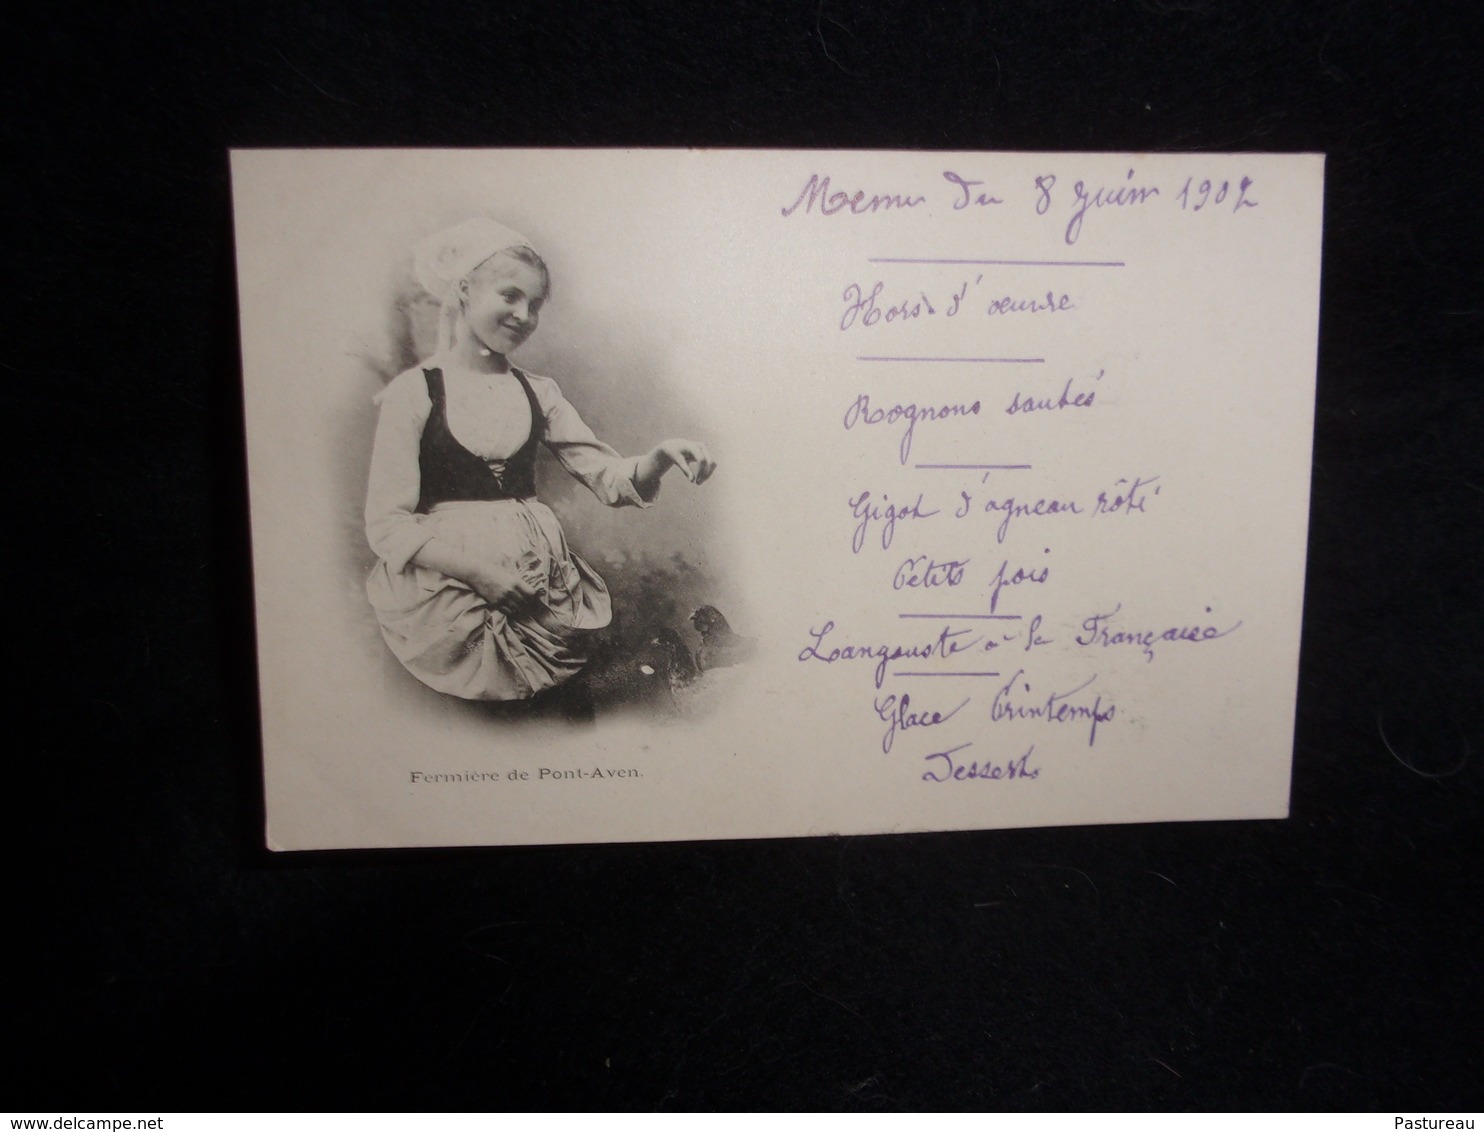 Menu du 8 Juin 1902
Hors d'œuvre
Rognons sautés
Gigot d'agneau rôti
Petits pois
Langouste à la Française
Glace Printemps
Dessert.
Fermière de Pont-Aven.
www.delcampe.net
Pastureau